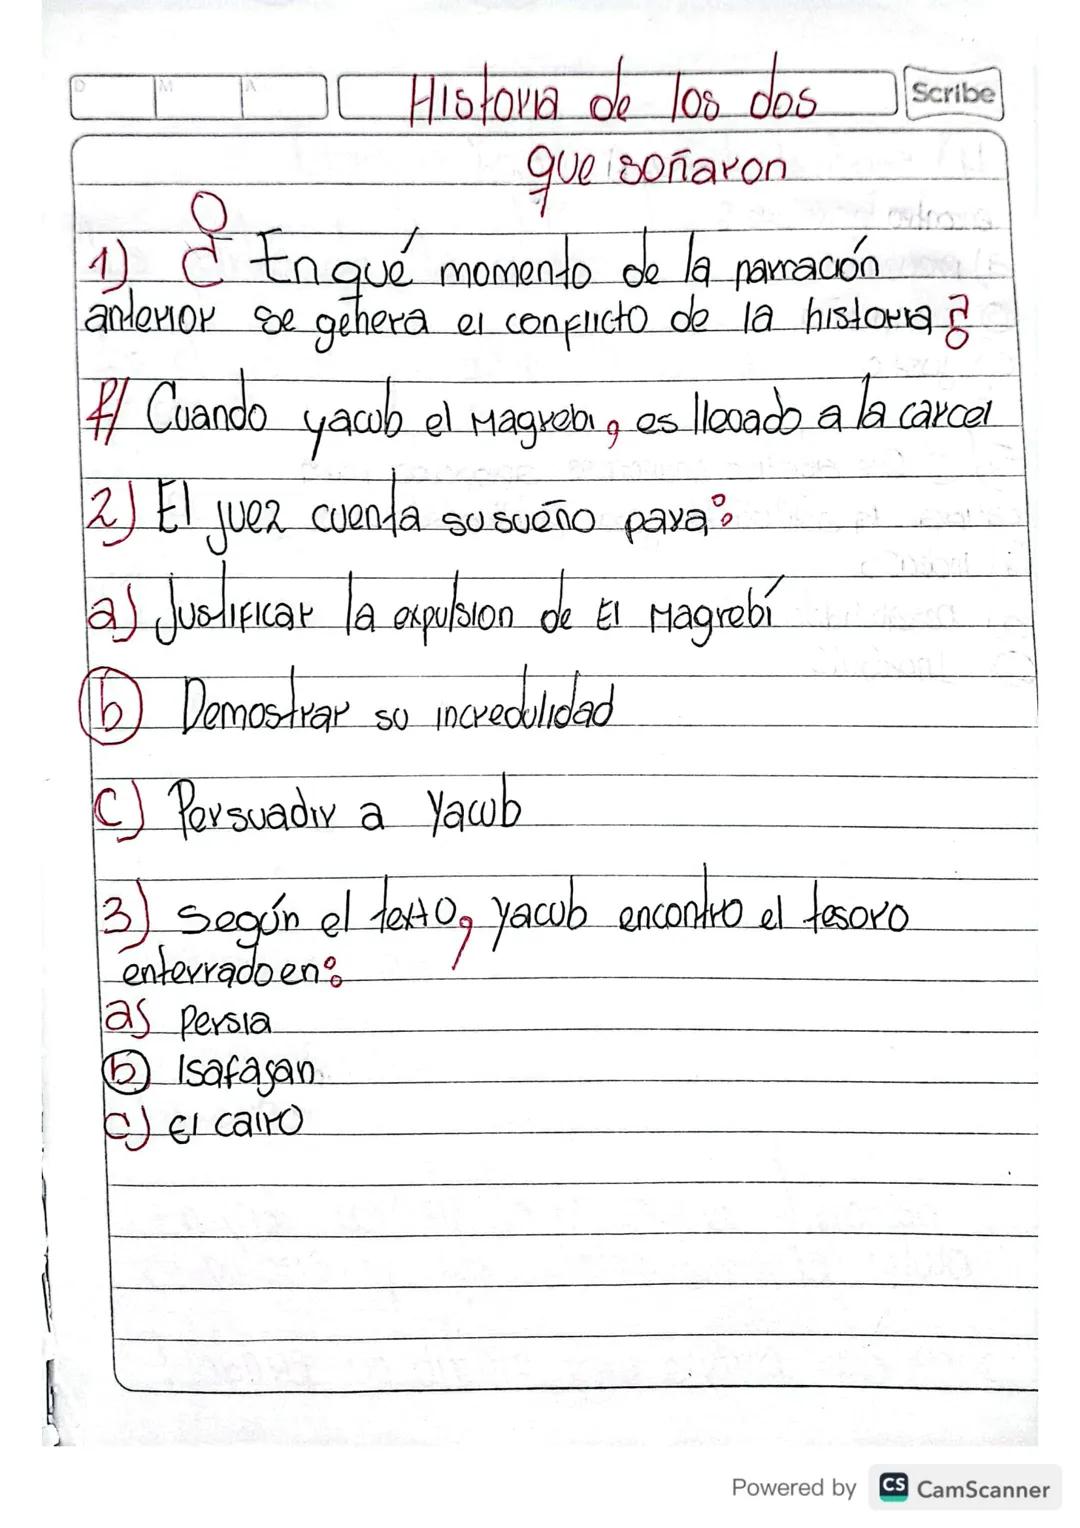 D M A Historia de los dos Scribe
que soñaron
1) ¿ En qué momento de la narración
anterior se genera el conflicto de la historia ?
R/ Cuando yacub el Magrebi, es llevado a la carcel
2) El juez cuenta su sueño para:
a) Justificar la expulsion de El Magrebí
b) Demostrar su incredulidad
C) Persuadir a Yacub
3) Según el texto, yacub encontro el tesoro
enterrado en:
a) Persia
b) Isafajan
c) El cairo
Powered by CS CamScanner